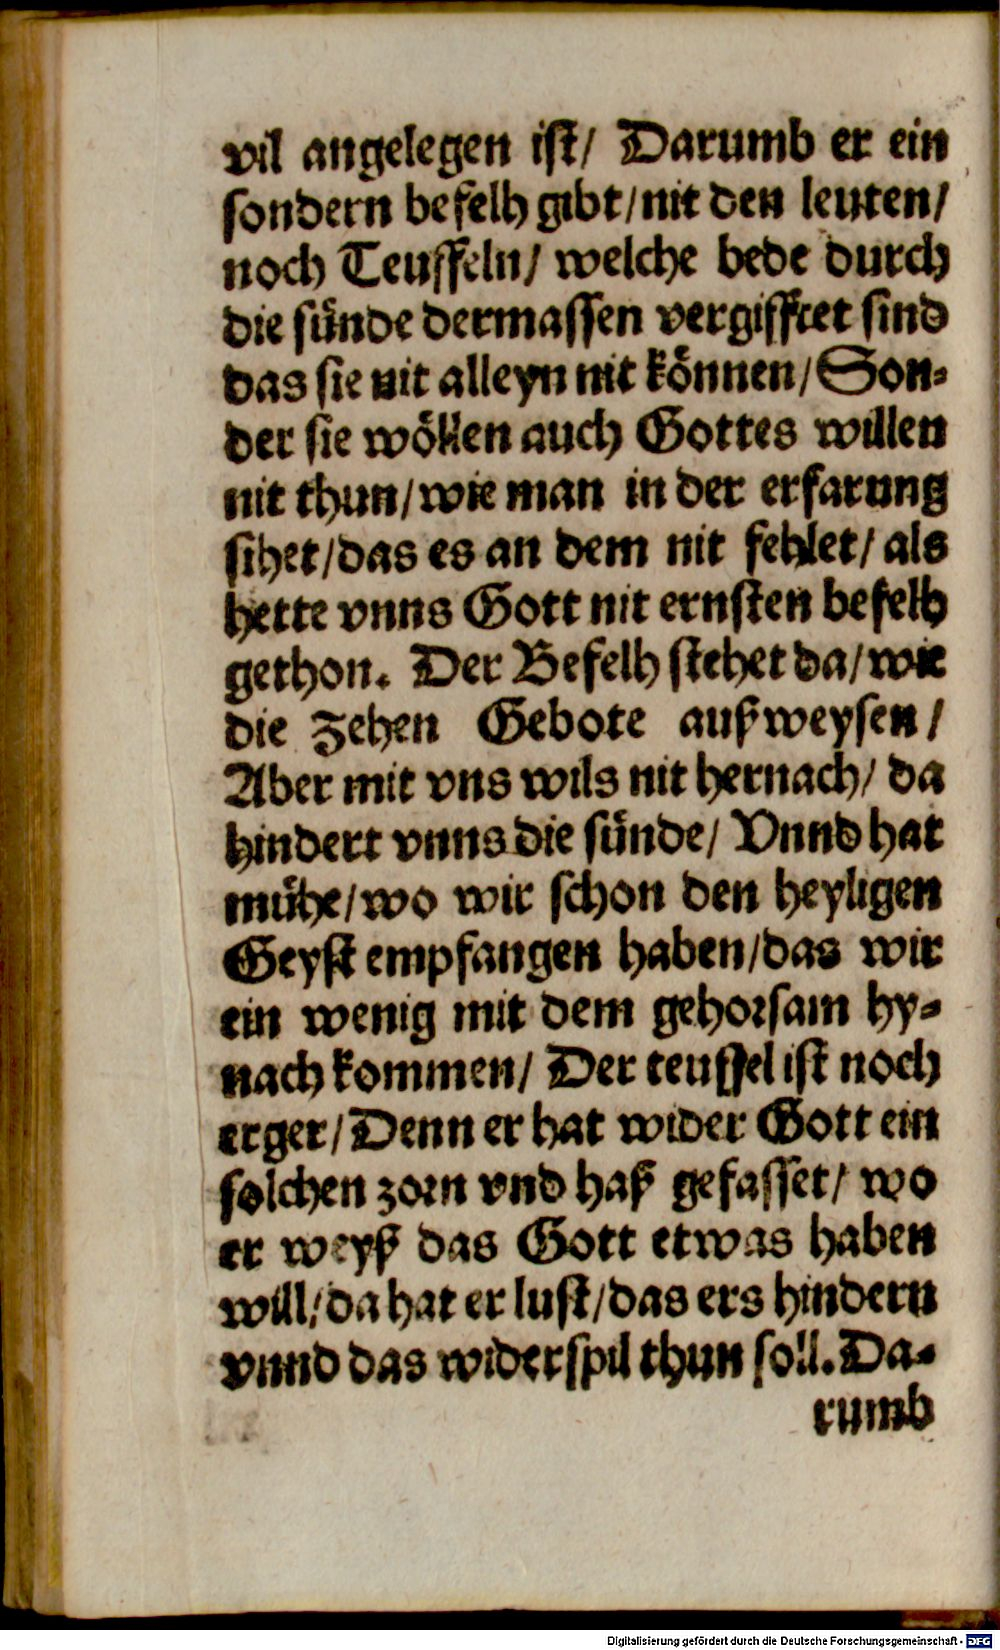 vil angelegen ist/ Darumb er ein
sondern befelh gibt/nit den leuten/
noch Teuffeln/ welche bede durch
die sünde dermassen vergifftet sind
das sie nit alleyn nit können/Son-
der sie wöllen auch Gottes willen
nit thun/wie man in der erfarung
sihet/das es an dem nit fehlet/ als
hette vnns Gott nit ernsten befelh
gethon. Der Befelh stehet da/wie
die zehen Gebote außweysen/
Aber mit vns wils nit hernach/ da
hindert vnns die sünde/ Vnnd hat
mühe/wo wir schon den heyligen
Geyst empfangen haben/das wir
ein wenig mit dem gehorsam hy-
nach kommen/ Der teuffel ist noch
erger/Denn er hat wider Gott ein
solchen zorn vnd haß gefasset/ wo
er weyß das Gott etwas haben
will/da hat er lust/das ers hindern
vnnd das widerspil thun soll. Da-
rumb
Digitalisierung gefördert durch die Deutsche Forschungsgemeinschaft - DFG